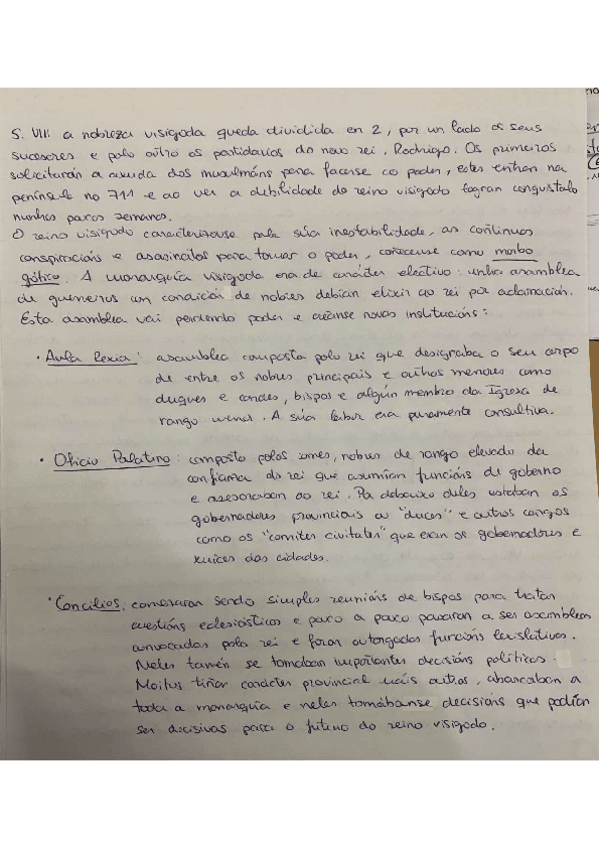 S. VIII: a nobreza visigoda queda dividida en 2, por un lado os seus
sucesores e polo outro os partidarios do novo rei, Rodrigo. Os primeiros
solicitarán a axuda dos musulmáns para facerse co poder, estes entran na
península no 711 e ao ver a debilidade do reino visigodo logran conquistalo
nunhas poucas semanas.
O reino visigodo caracterizouse pola súa inestabilidade, as continuas
conspiracións e asasinatos para tomar o poder, coñécese como morbo
gótico. A monarquía visigoda era de carácter electivo: unha asamblea
de guerreiros con condición de nobres debían elixir ao rei por aclamación.
Esta asamblea vai perdendo poder e créanse novas institucións:
· Aula Rexia: asamblea composta polo rei que designaba o seu corpo
de entre os nobres principais e outros menores como
duques e condes, bispos e algún membro da Igrexa de
rango menor. A súa labor era puramente consultiva.
· Oficio Palatino: composto polos nobres de rango elevado da
confianza do rei que asumían funcións de goberno
e asesoraban ao rei. Por debaixo deles estaban os
gobernadores provinciais ou "duces" e outros cargos
como os "comites civitates" que eran os gobernadores e
xuíces das cidades.
· Concilios: comezaron sendo simples reunións de bispos para tratar
cuestións eclesiásticas e pouco a pouco pasaron a ser asambleas
convocadas polo rei e foron outorgadas funcións lexislativas.
Neles tamén se tomaban importantes decisións políticas.
Moitos tiñan carácter provincial mais outros, abarcaban a
toda a monarquía e neles tomábanse decisións que podían
ser decisivas para o futuro do reino visigodo.